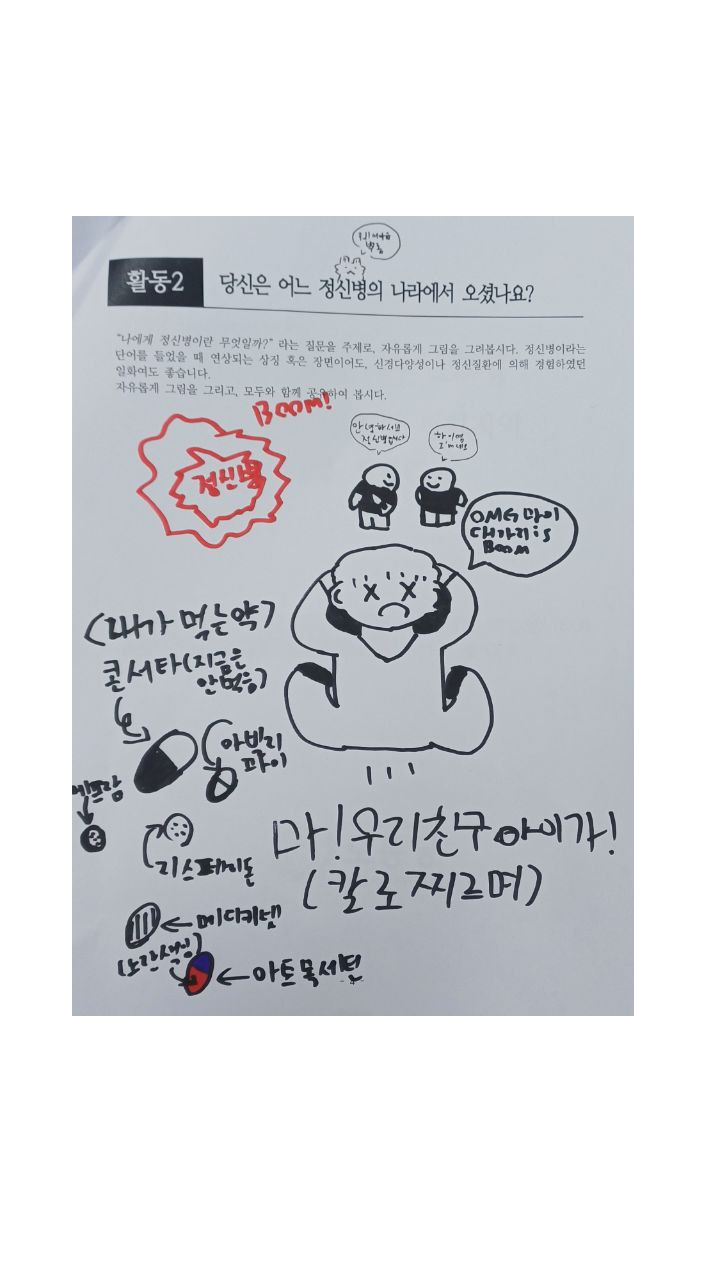 활동2
당신은 어느 정신병의 나라에서 오셨나요?
"나에게 정신병이란 무엇일까?" 라는 질문을 주제로, 자유롭게 그림을 그려봅시다. 정신병이라는
단어를 들었을 때 연상되는 상징 혹은 장면이어도, 신경다양성이나 정신질환에 의해 경험하였던
일화여도 좋습니다.
자유롭게 그림을 그리고, 모두와 함께 공유하여 봅시다.
BOOM!
정신병
안녕하세요
정신병입니다
하이염
OMG 마이
대가리 is
BOOM
(내가 먹는약)
콘서타(지금은
안먹음)
아빌리
파이
렉프람
리스페리돈
메디키넷
(노란색임)
아토목세틴
마! 우리친구 아이가!
(칼로 찌르며)